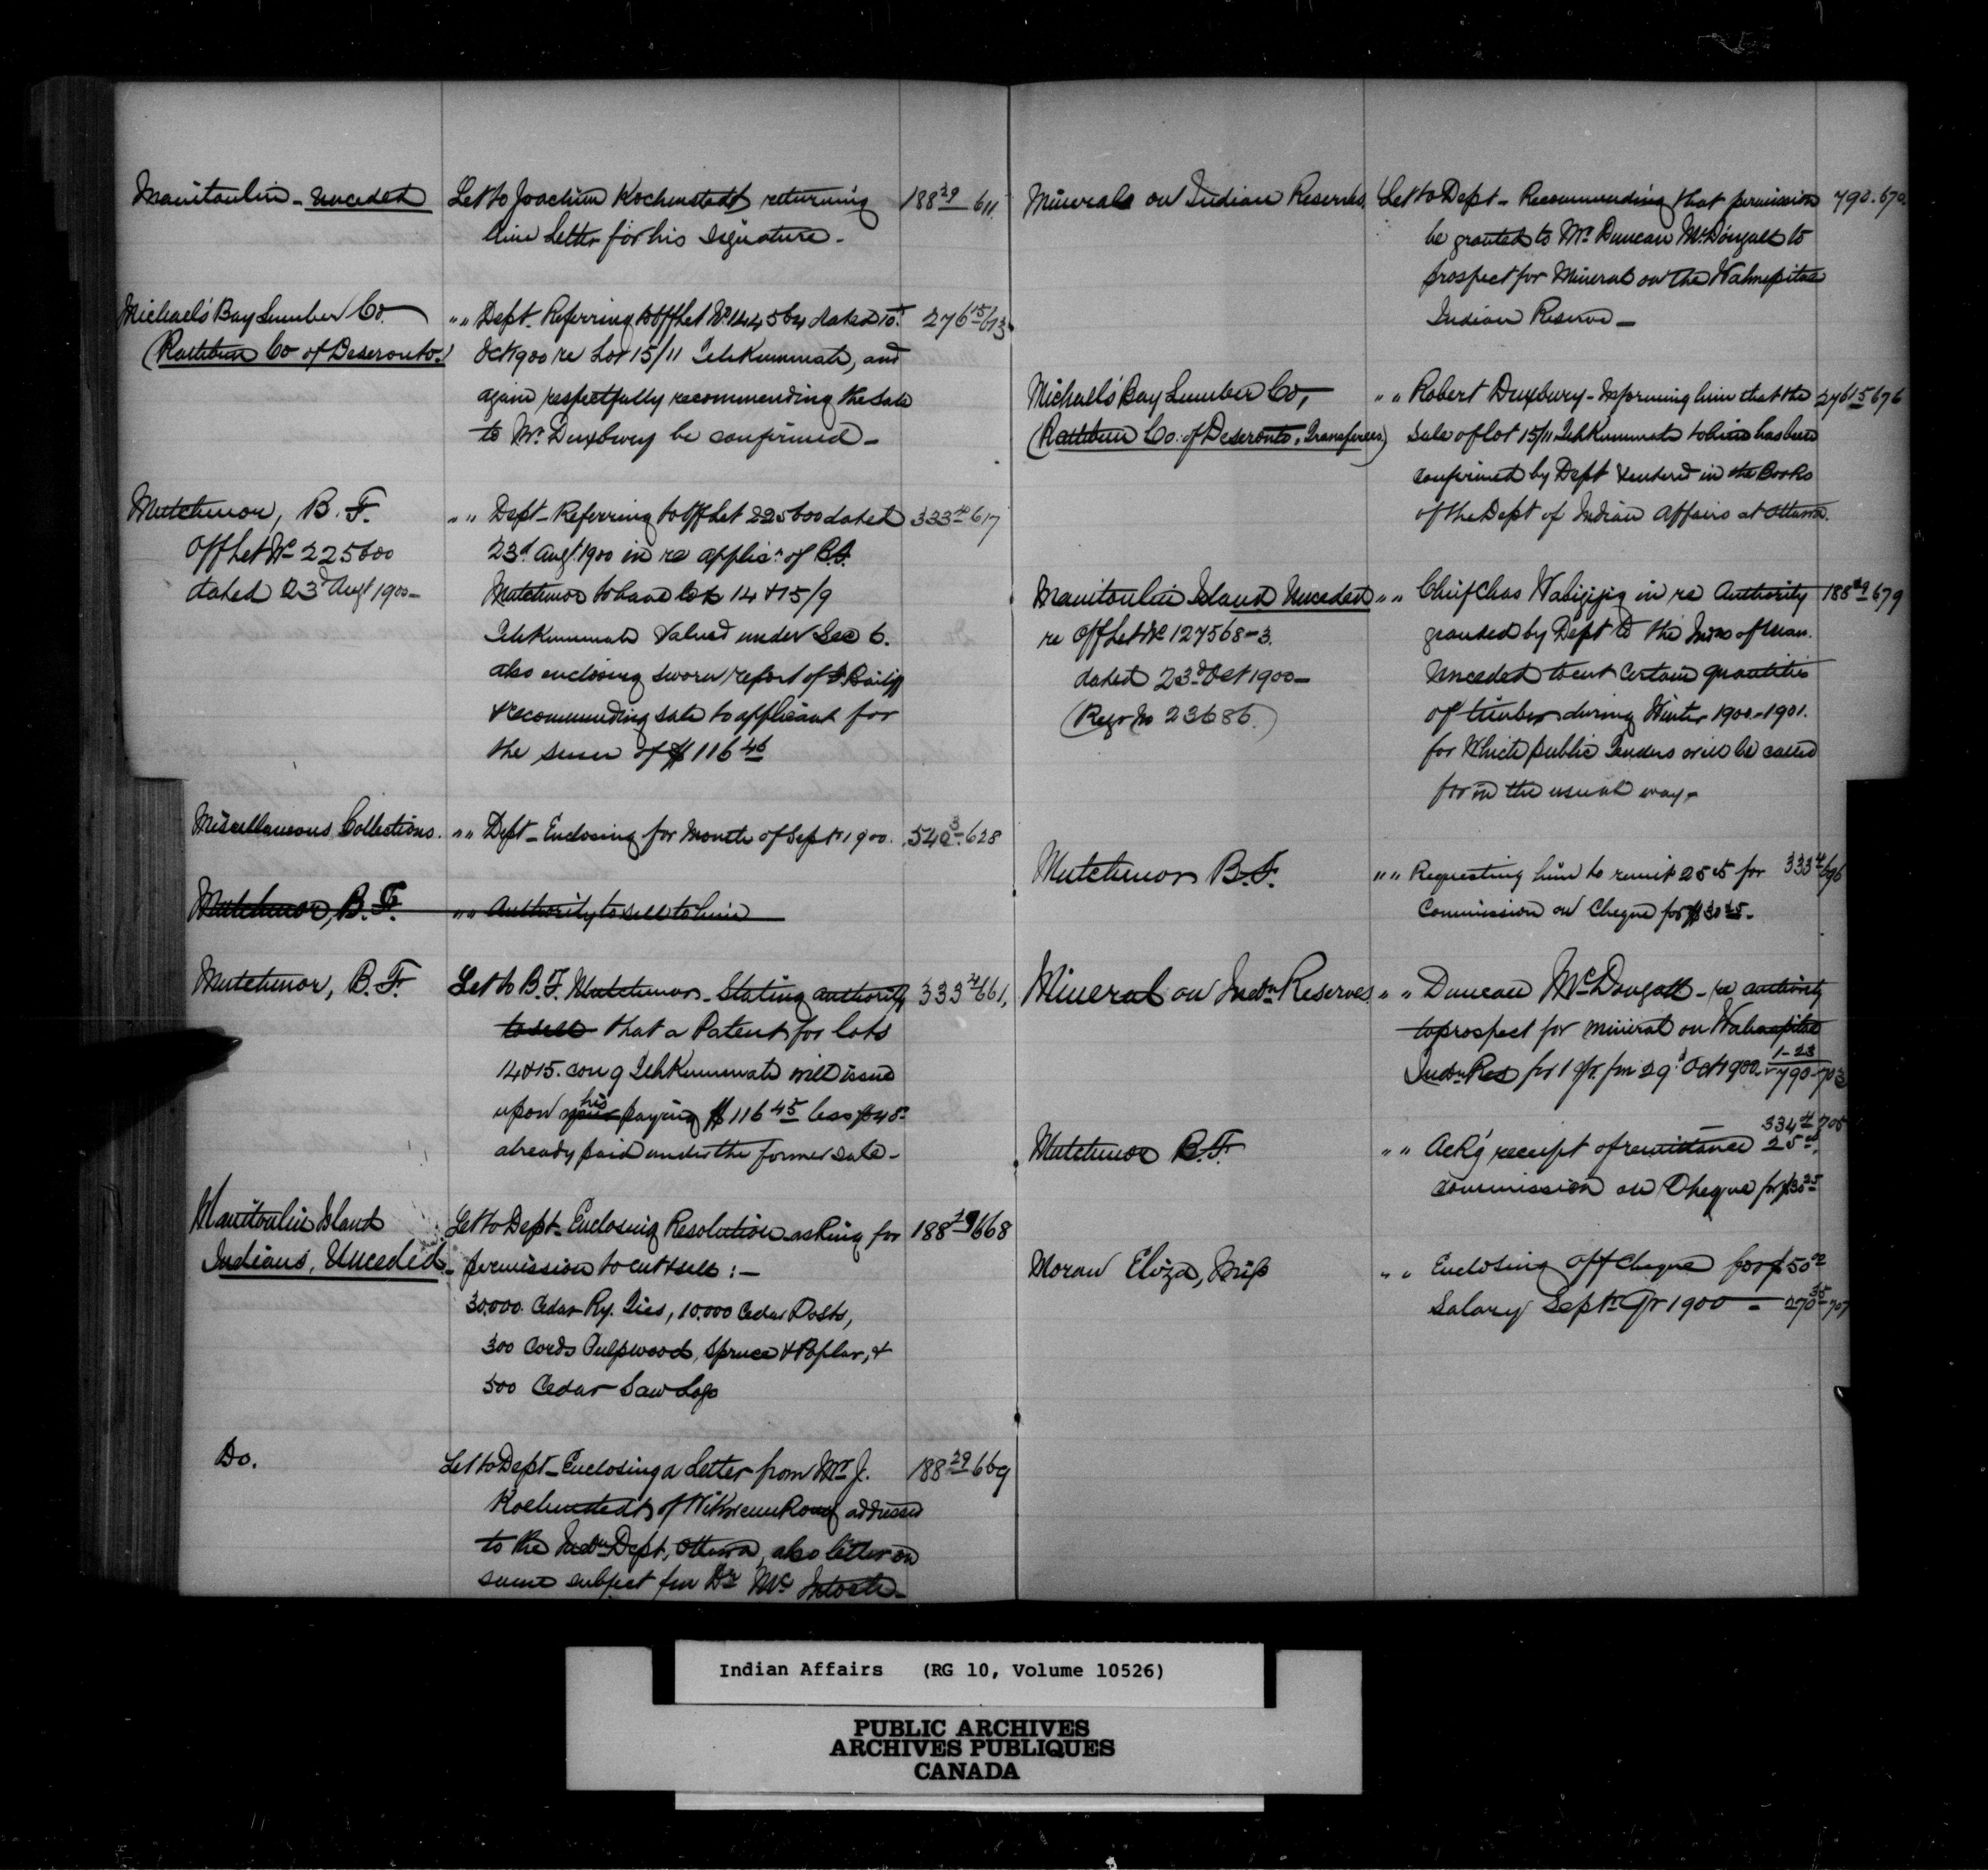 Manitoulin - Unceded
Let to Joachim Kochenstedt returning 188 29 611
him Letter for his signature -
Michael's Bay Lumber Co.
(Rathbun Co of Deseronto.)
" " Dept. Referring to Off Let No 144564 dated 10th 276 15 613
Oct 1900 re Lot 15/11 Tehkummah, and
again respectfully recommending the sale
to Mr Duxbury be confirmed -
Mutchmor, B. F.
Off Let No 225600
dated 23d Augt 1900 -
" " Dept - Referring to Off Let 225600 dated 333 4 617
23d Augt 1900 in re applicn of B.F.
Mutchmor to have lots 14 & 15/9
Tehkummah Valued under Sec 6.
also enclosing sworn report of
& recommending sale to applicant for
the sum of $116 46
Miscellaneous Collections. " " Dept - Enclosing for Month of Sept 1900. 540 3 628
Mutchmor, B. F. " " Authority to sell to him
Mutchmor, B. F.
Let to B. F. Mutchmor - Stating authority 333 4 661,
to sell that a Patent for lots
14 & 15. con 9 Tehkummah will issue
upon your his paying $116 45 less $48
already paid under the former sale -
Manitoulin Island
Indians, Unceded -
Let to Dept - Enclosing Resolution asking for 188 29 668
permission to cut & sell : -
30,000 Cedar Ry. Ties, 10,000 Cedar Posts,
300 Cords Pulpwood, Spruce & Poplar, &
500 Cedar Saw Logs
Do.
Let to Dept - Enclosing a Letter from Mr J. 188 29 669
Kochenstedt of Wikwemikong addressed
to the Indn Dept, Ottawa, also letter on
same subject fm Dr McIntosh -
Minerals on Indian Reserves.
Let to Dept - Recommending that permission 790. 670.
be granted to Mr Duncan McDougall to
prospect for Mineral on the Wahnapitae
Indian Reserve -
Michael's Bay Lumber Co,
(Rathbun Co. of Deseronto, Transferees)
" " Robert Duxbury - Informing him that the 276 15 676
Sale of lot 15/11 Tehkummah to him has been
confirmed by Dept & entered in the Books
of the Dept of Indian Affairs at Ottawa.
Manitoulin Island Unceded
re Off Let No 127568-3.
dated 23d Oct 1900 -
(Regr No 23686.)
" " Chief Chas Wabigijig in re Authority 188 29 679
granted by Dept to the Indns of Man.
Unceded to cut certain quantities
of timber during Winter 1900-1901.
for Which public Tenders will be called
for in the usual way -
Mutchmor B. F.
" " Requesting him to remit 25 cts for 333 4 696
Commission on Cheque for $30 25 -
Mineral on Indn Reserves
" " Duncan McDougall - re authority
to prospect for mineral on Wahnapitae
Indn Res for 1 yr. fm 29th Oct 1900. 1-23 790-703
Mutchmor B. F.
334 4 705
" " Ack'g receipt of remittance 25 cts
commission on Cheque for $30 25
Moran Eliza, Miss
" " Enclosing Off Cheque for $50 00
Salary Sept Qr 1900 - 270 35 707
Indian Affairs (RG 10, Volume 10526)
PUBLIC ARCHIVES
ARCHIVES PUBLIQUES
CANADA